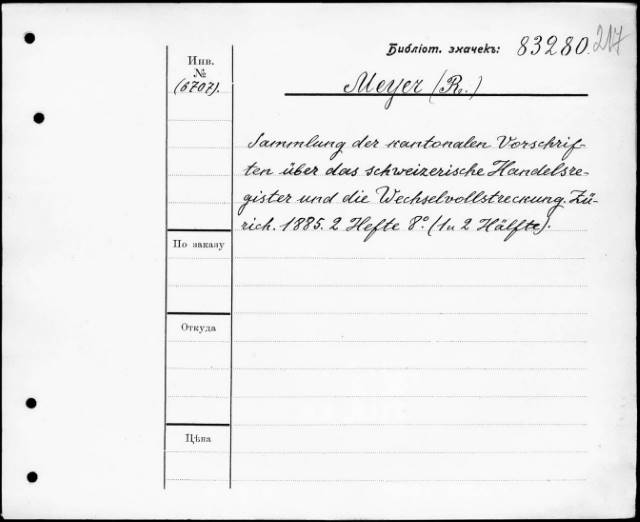 Библіот. значекъ: 83280. 217
Инв.
№
(6707).
Meyer (R.)
Sammlung der kantonalen Vorschrif-
ten über das schweizerische Handelsre-
gister und die Wechselvollstreckung. Zü-
rich. 1885. 2 Hefte 8° (1 u 2 Hälfte).
По заказу
Откуда
Цѣна